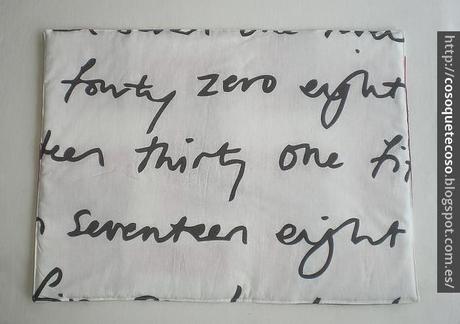 seven one five
fourty zero eight
teen thirty one fi
seventeen eight
http://cosoquetecoso.blogspot.com.es/